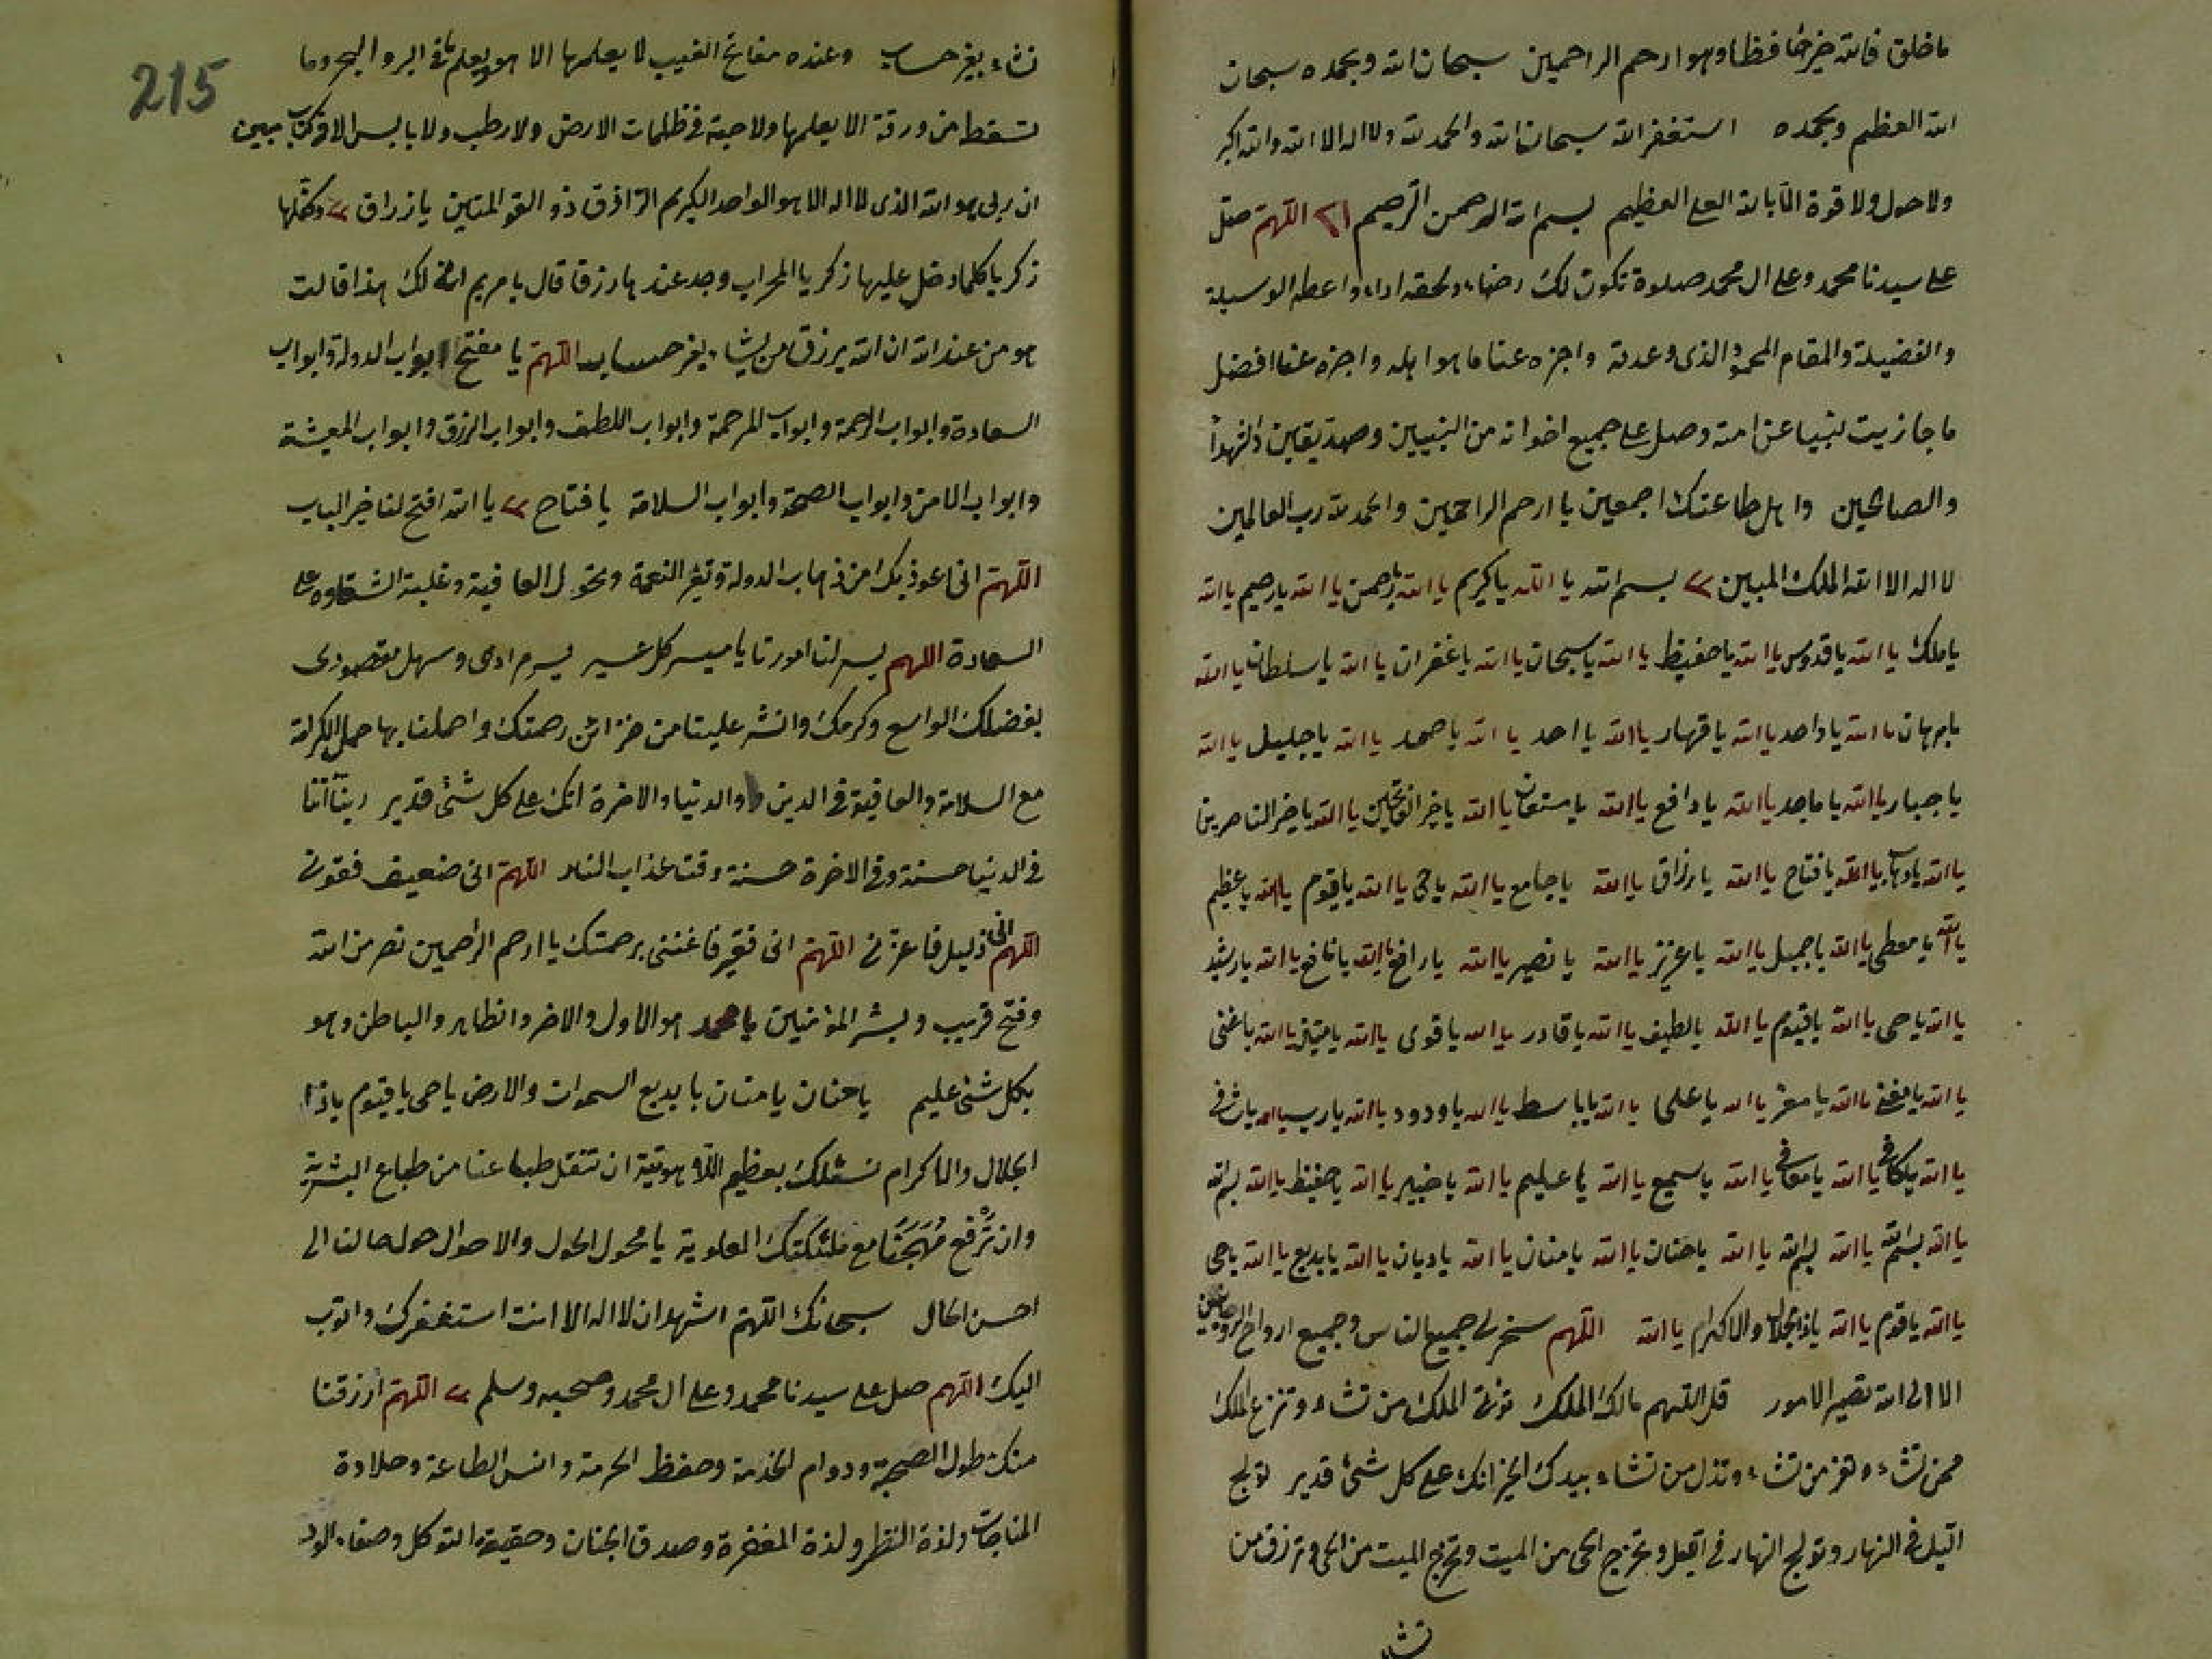 ما خلق فالله خير حافظا وهو ارحم الراحمين سبحان الله وبحمده سبحان
الله العظيم وبحمده استغفر الله سبحان الله والحمد لله ولا اله الا الله والله اكبر
ولا حول ولا قوة الا بالله العلى العظيم بسم الله الرحمن الرحيم ٢١ اللهم صل
على سيدنا محمد وعلى ال محمد صلوة تكون لك رضاء ولحقه اداء واعطه الوسيلة
والفضيلة والمقام المحمود الذى وعدته واجزه عنا ما هو اهله واجزه عنا افضل
ما جازيت نبيا عن امته وصل على جميع اخوانه من النبيين وصديقين والشهدا
والصالحين واهل طاعتك اجمعين يا ارحم الراحمين والحمد لله رب العالمين
لا اله الا الله الملك المبين ٢ بسم الله يا الله يا كريم يا الله يا رحمن يا الله يا رحيم يا الله
يا ملك يا الله يا قدوس يا الله يا حفيظ يا الله يا سبحان يا الله يا غفران يا الله يا سلطان يا الله
يا برهان يا الله يا واحد يا الله يا قهار يا الله يا احد يا الله يا صمد يا الله يا جليل يا الله
يا جبار يا الله يا ماجد يا الله يا دافع يا الله يا مستعان يا الله يا خير الفاتحين يا الله يا خير الناصرين
يا الله يا وهاب يا الله يا فتاح يا الله يا رزاق يا الله يا جامع يا الله يا حى يا الله يا قيوم يا الله يا عظيم
يا الله يا معطى يا الله يا جميل يا الله يا عزيز يا الله يا نصير يا الله يا رافع يا الله يا نافع يا الله يا رشيد
يا الله يا حى يا الله يا قيوم يا الله يا لطيف يا الله يا قادر يا الله يا قوى يا الله يا متين يا الله يا غنى
يا الله يا مغنى يا الله يا معز يا الله يا على يا الله يا باسط يا الله يا ودود يا الله يا رب يا الله يا شافى
يا الله يا كافى يا الله يا معافى يا الله يا سميع يا الله يا عليم يا الله يا خبير يا الله يا حفيظ يا الله بسم الله
يا الله بسم الله يا الله بسم الله يا الله يا حنان يا الله يا منان يا الله يا ديان يا الله يا بديع يا الله يا حى
يا الله يا قيوم يا الله يا ذا الجلال والاكرام يا الله اللهم سخر لى جميع الناس وجميع ارواح الروحانيين
الا الى الله تصير الامور قل اللهم مالك الملك تؤتى الملك من تشاء وتنزع الملك
ممن تشاء وتعز من تشاء وتذل من تشاء بيدك الخير انك على كل شئ قدير تولج
الليل فى النهار وتولج النهار فى الليل وتخرج الحى من الميت وتخرج الميت من الحى وترزق من
تشاء
215
تشاء بغير حساب وعنده مفاتح الغيب لا يعلمها الا هو ويعلم ما فى البر والبحر وما
تسقط من ورقة الا يعلمها ولا حبة فى ظلمات الارض ولا رطب ولا يابس الا فى كتاب مبين
ان ربى هو الله الذى لا اله الا هو الواحد الكريم الرزاق ذو القو المتين يا رزاق ٢ وكفلها
زكريا كلما دخل عليها زكريا المحراب وجد عندها رزقا قال يا مريم انى لك هذا قالت
هو من عند الله ان الله يرزق من يشاء بغير حساب اللهم يا مفتح ابواب الدولة وابواب
السعادة وابواب الرحمة وابواب المرحمة وابواب اللطف وابواب الرزق وابواب المعيشة
وابواب الامن وابواب الصحة وابواب السلامة يا فتاح ٢ يا الله افتح لنا خير الباب
اللهم انى اعوذ بك من ذهاب الدولة وتغير النعمة وتحول العافية وغلبة الشقاوة على
السعادة اللهم يسر لنا امورنا يا ميسر كل عسير يسر مرادى وسهل مقصودى
بفضلك الواسع وكرمك وانشر علينا من خزائن رحمتك واحملنا بها حمل الكرامة
مع السلامة والعافية فى الدين والدنيا والاخرة انك على كل شئ قدير ربنا آتنا
فى الدنيا حسنة وفى الاخرة حسنة وقنا عذاب النار اللهم انى ضعيف فقونى
اللهم انى ذليل فاعزنى اللهم انى فقير فاغننى برحمتك يا ارحم الراحمين نصر من الله
وفتح قريب وبشر المؤمنين يا محمد هو الاول والاخر والظاهر والباطن وهو
بكل شئ عليم يا حنان يا منان يا بديع السموات والارض يا حى يا قيوم يا ذا
الجلال والاكرام نسئلك بعظيم اللاهوتية ان تنقل طباعنا من طباع البشرية
وان ترفع مهجنا مع ملئكتك العلوية يا محول الحول والاحوال حول حالنا الى
احسن الحال سبحانك اللهم اشهد ان لا اله الا انت استغفرك واتوب
اليك اللهم صل على سيدنا محمد وعلى ال محمد وصحبه وسلم ٢ اللهم ارزقنا
منك طول الصحبة ودوام الخدمة وحفظ الحرمة وانس الطاعة وحلاوة
المناجات ولذة النظر ولذة المغفرة وصدق الجنان وحقيقة التوكل وصفاء الود